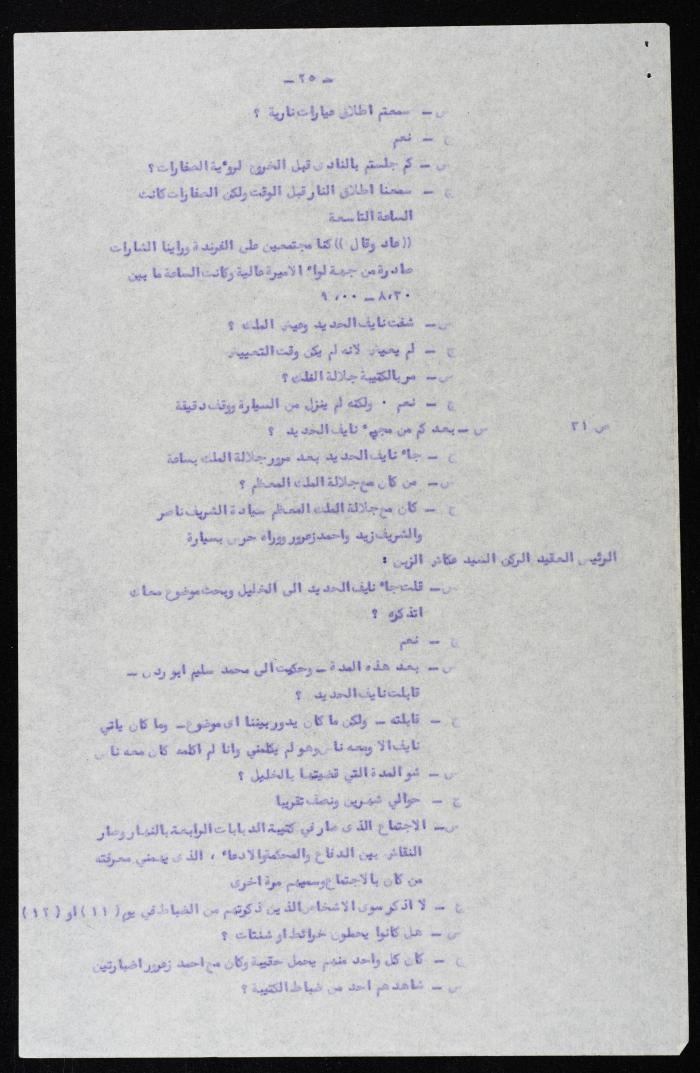 ـ ٢٥ ـ
س ـ سمعتم اطلاق عيارات نارية ؟
ج ـ نعم
س ـ كم جلستم بالنادي قبل الخروج لروءية الصفارات؟
ج ـ سمعنا اطلاق النار قبل الوقت ولكن الصفارات كانت
الساعة التاسعة
((عاد وقال )) كنا مجتمعين على الفرندة وراينا الشارات
صادرة من جهة لواء الاميرة عالية وكانت الساعة ما بين
٨،٣٠ ـ ٩،٠٠
س ـ شفت نايف الحديد وعيش الملك ؟
ج ـ لم يعيش لانه لم يكن وقت التعييش
س ـ مر بالكتيبة جلالة الملك ؟
ج ـ نعم ٠ ولكنه لم ينزل من السيارة ووقف دقيقة
ص ٢١ س ـ بعد كم من مجيء نايف الحديد ؟
ج ـ جاء نايف الحديد بعد مرور جلالة الملك بساعة
س ـ من كان مع جلالة الملك المعظم ؟
ج ـ كان مع جلالة الملك المعظم سيادة الشريف ناصر
والشريف زيد واحمد زعرور ووراه حرس بسيارة
الرئيس العقيد الركن السيد عكاش الزبن :
س ـ قلت جاء نايف الحديد الى الخليل وبحث موضوع معاك
اتذكره ؟
ج ـ نعم
س ـ بعد هذه المدة ـ وحكيت الى محمد سليم ابو ردن ـ
قابلت نايف الحديد ؟
ج ـ قابلته ـ ولكن ما كان يدور بيننا اى موضوع ـ وما كان ياتي
نايف الا ومعه ناس وهو لم يكلمني وانا لم اكلمه كان معه ناس
س ـ شو المدة التي قضيتها بالخليل ؟
ج ـ حوالي شهرين ونصف تقريبا
س ـ الاجتماع الذى صار في كتيبة الدبابات الرابعة بالنهار وصار
النقاش بين الدفاع والمحكمة والادعاء ، الذى يهمني معرفته
من كان بالاجتماع وسميهم مرة اخرى
ج ـ لا اذكر سوى الاشخاص الذين ذكرتهم من الضباط في يوم (١١) او (١٢)
س ـ هل كانوا يحملون خرائط او شنتات ؟
ج ـ كان كل واحد منهم يحمل حقيبة وكان مع احمد زعرور اضبارتين
س ـ شاهدهم احد من ضباط الكتيبة ؟